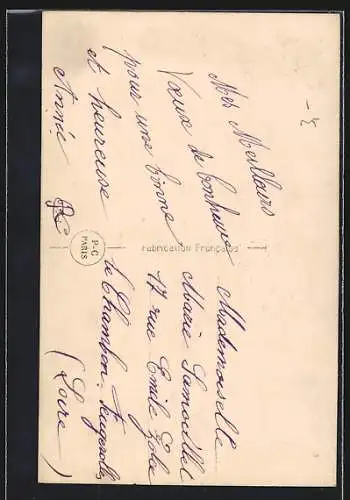 Mes Meilleurs
Vœux de bonheur
pour une bonne
et heureuse
Année
P-C
PARIS
Fabrication Française
Mademoiselle
Marie
17 rue Emile Zola
le Chambon-Feugerolles
(Loire)